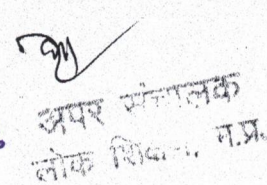 अपर संचालक
लोक शिक्षण, म.प्र.